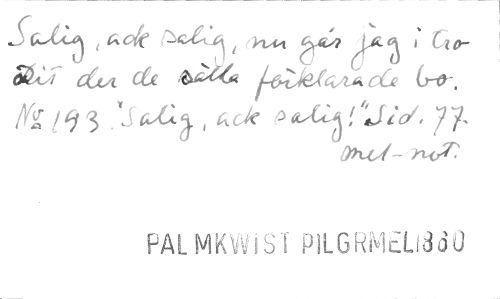 Salig, ack salig, nu går jag i tro
Dit der de sälla förklarade bo.
No 193. "Salig, ack salig!" Sid. 77.
mel-not.
PALMKWIST PILGRMEL1880